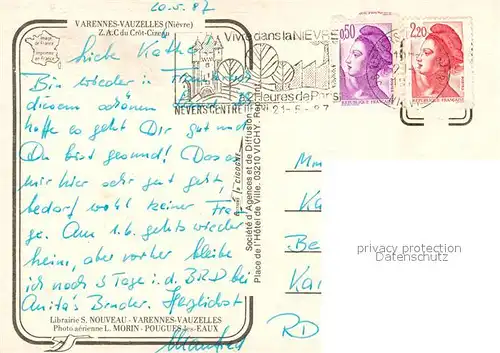 20.5.87
VARENNES-VAUZELLES (Nièvre)
Z.A.C du Crôt-Cizeau
Image de France
Imprimée en France
Vivre dans la NIEVRE
à 2 Heures de Paris
NEVERS CENTRE
21-5-87
0,50
2,20
REPUBLIQUE FRANÇAISE
Bin wieder in Frankreich
diesem schönen
hoffe es geht Dir gut und
Du bist gesund! Dass es
mir hier sehr gut geht,
bedarf wohl keiner Fra-
ge. Am 1.6. gehts wieder
heim, aber vorher bleibe
ich noch 3 Tage i.d. BRD bei
Anita's Bruder. Herzlichst
Manfred
Librairie S. NOUVEAU - VARENNES-VAUZELLES
Photo aérienne L. MORIN - POUGUES-les-EAUX
LA CIGOGNE
Société d'Agences et de Diffusion
Place de l'Hôtel de Ville. 03210 VICHY.
Ka
Be
Ka
privacy protection
DATENSCHUTZ